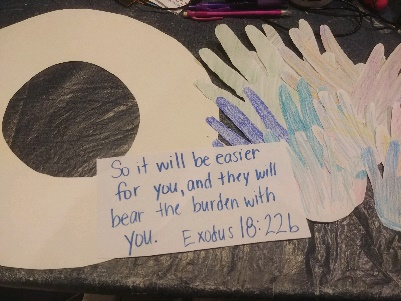 So it will be easier
for you, and they will
bear the burden with
you. Exodus 18:22b